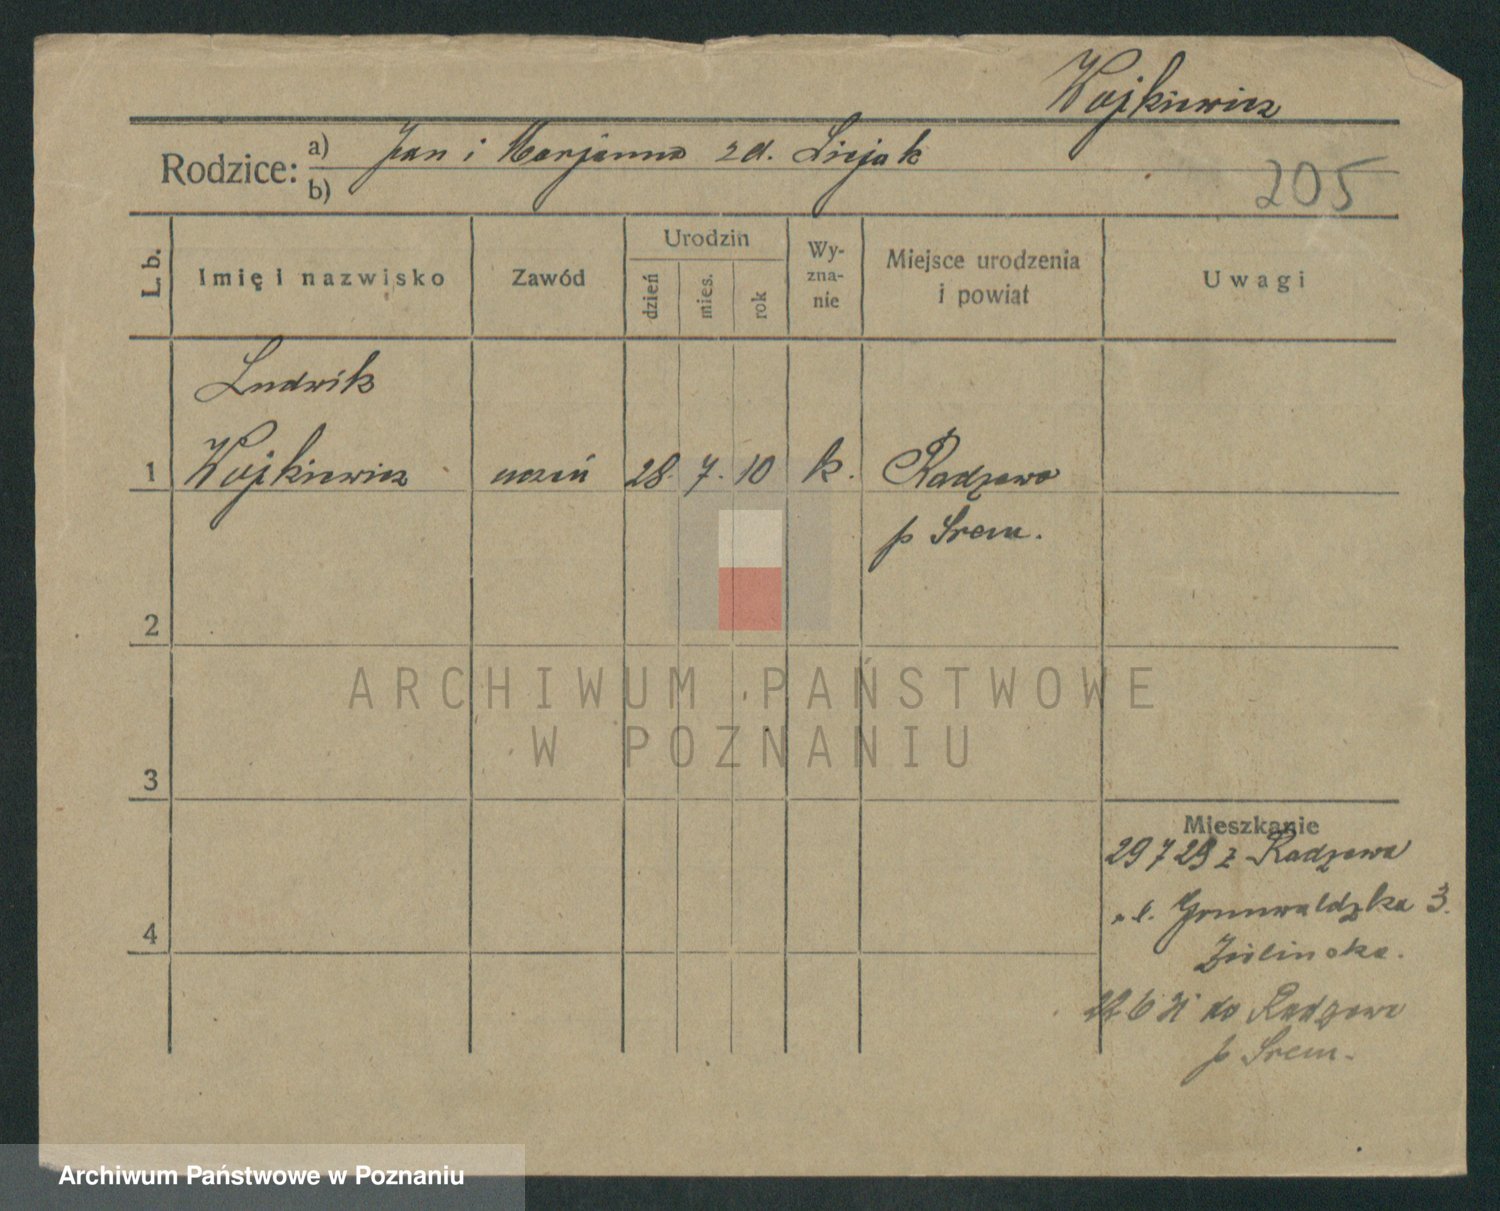 Wojkiewicz
Rodzice: a) Jan i Marjanna zd. Licjak
b)
205
L. b. Imię i nazwisko Zawód Urodzin dzień mies. rok Wy-zna-nie Miejsce urodzenia i powiat Uwagi
Ludwik
1 Wojkiewicz uczeń 28. 7. 10 k. Radzewo
p Śrem.
2
ARCHIWUM PAŃSTWOWE
W POZNANIU
3
Mieszkanie
29 7 29 z Radzewa
ul. Grunwaldzka 3.
4
Zielinska.
22 6 31 do Radzewo
p Śrem.
Archiwum Państwowe w Poznaniu